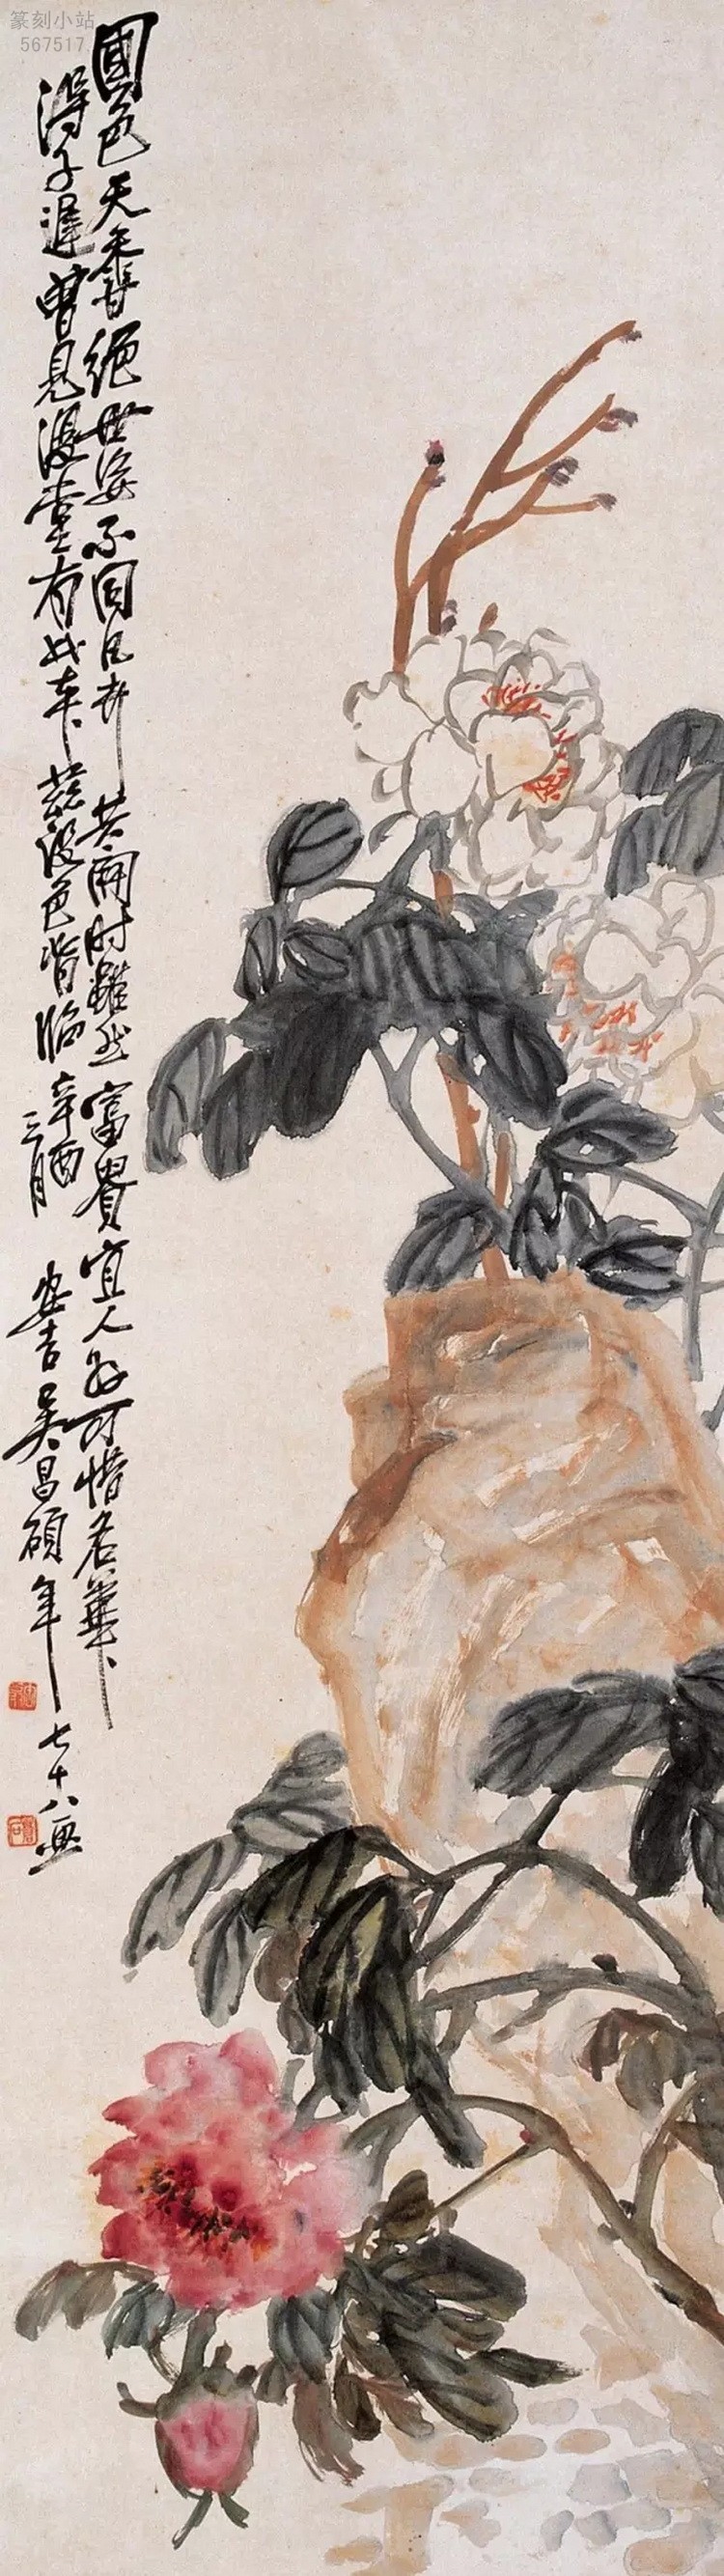 篆刻小站
567517
國色天香絕世姿不同凡卉共開時雖然富貴宜人好可惜名華
得子遲曾見漫堂有此本茲設色背臨辛酉
三月
安吉吳昌碩年七十八画